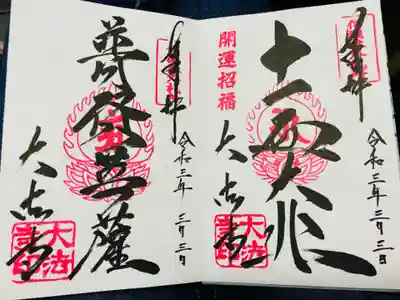 奉拝
十一面大悲
開運招福
大法寺
大法寺印
令和三年 三月三日
奉拝
普賢菩薩
大法寺
大法寺印
令和三年 三月三日